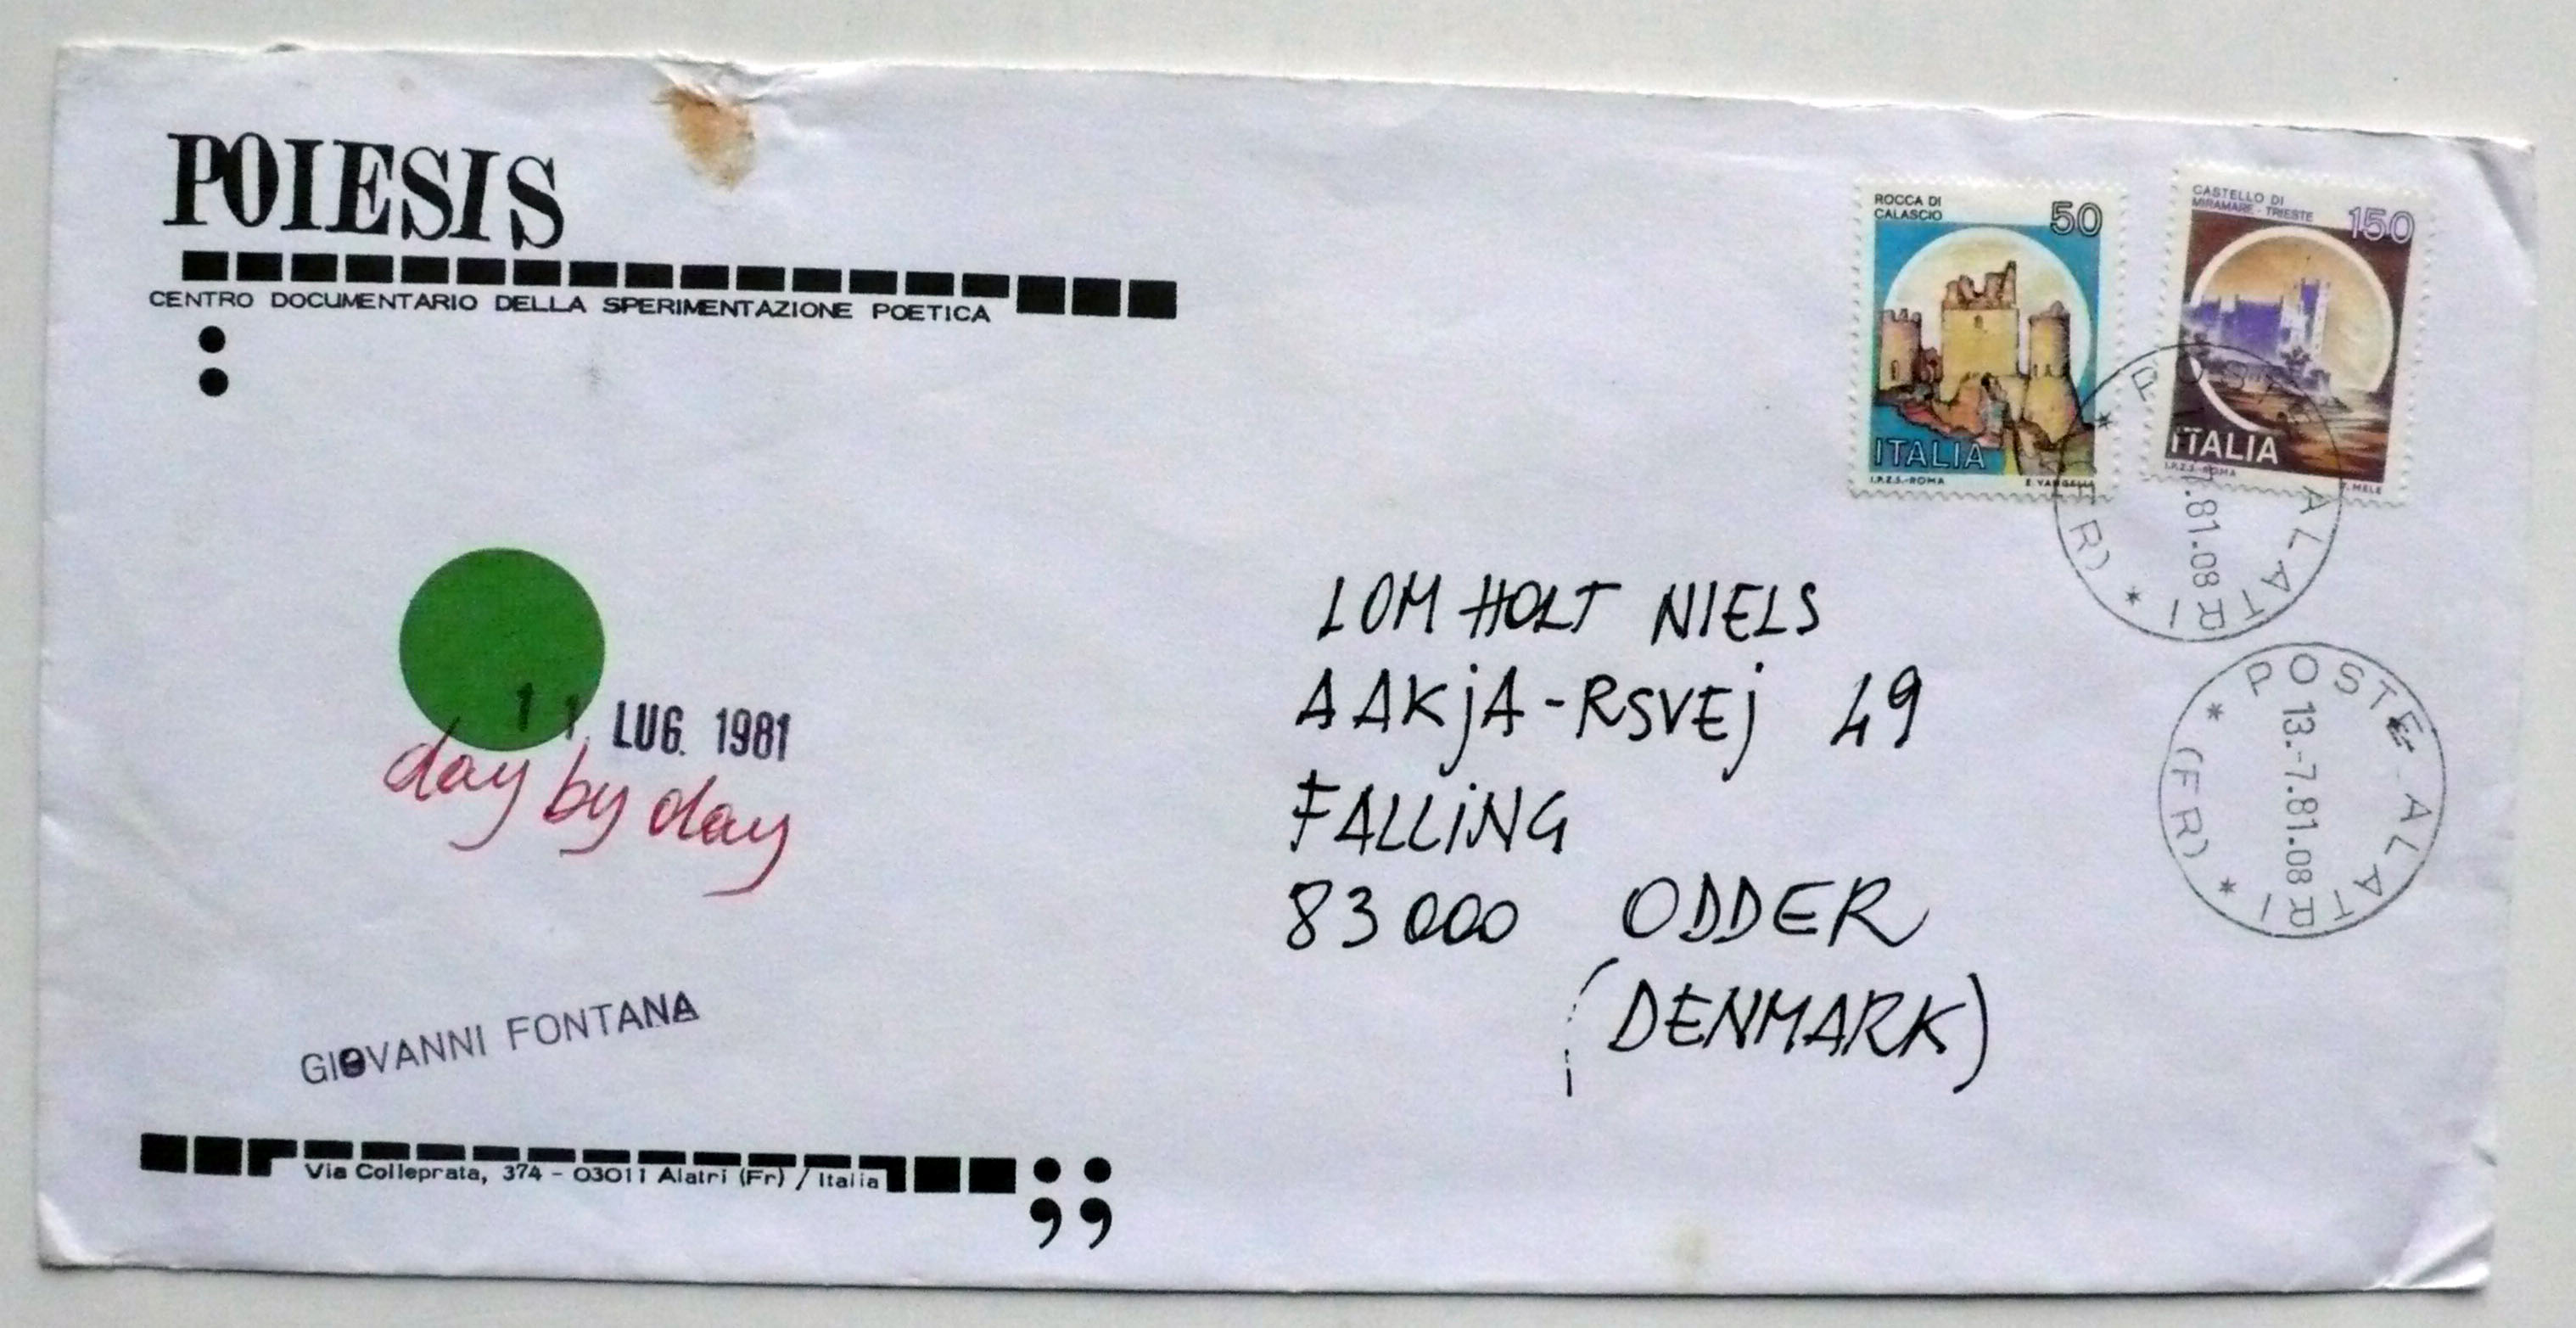 POIESIS
CENTRO DOCUMENTARIO DELLA SPERIMENTAZIONE POETICA
ROCCA DI
CALASCIO
50
ITALIA
I.P.Z.S.-ROMA
CASTELLO DI
MIRAMARE - TRIESTE
150
ITALIA
I.P.Z.S.-ROMA
MELE
POSTE ALATRI
7.81.08
* (FR) *
LOM HOLT NIELS
AAKjA-RSVEj 49
FALLiNG
83000 ODDER
(DENMARK)
POSTE ALATRI
13.-7.81.08
* (FR) *
11. LUG. 1981
day by day
GIOVANNI FONTANA
Via Colleprata, 374 - 03011 Alatri (Fr) / Italia